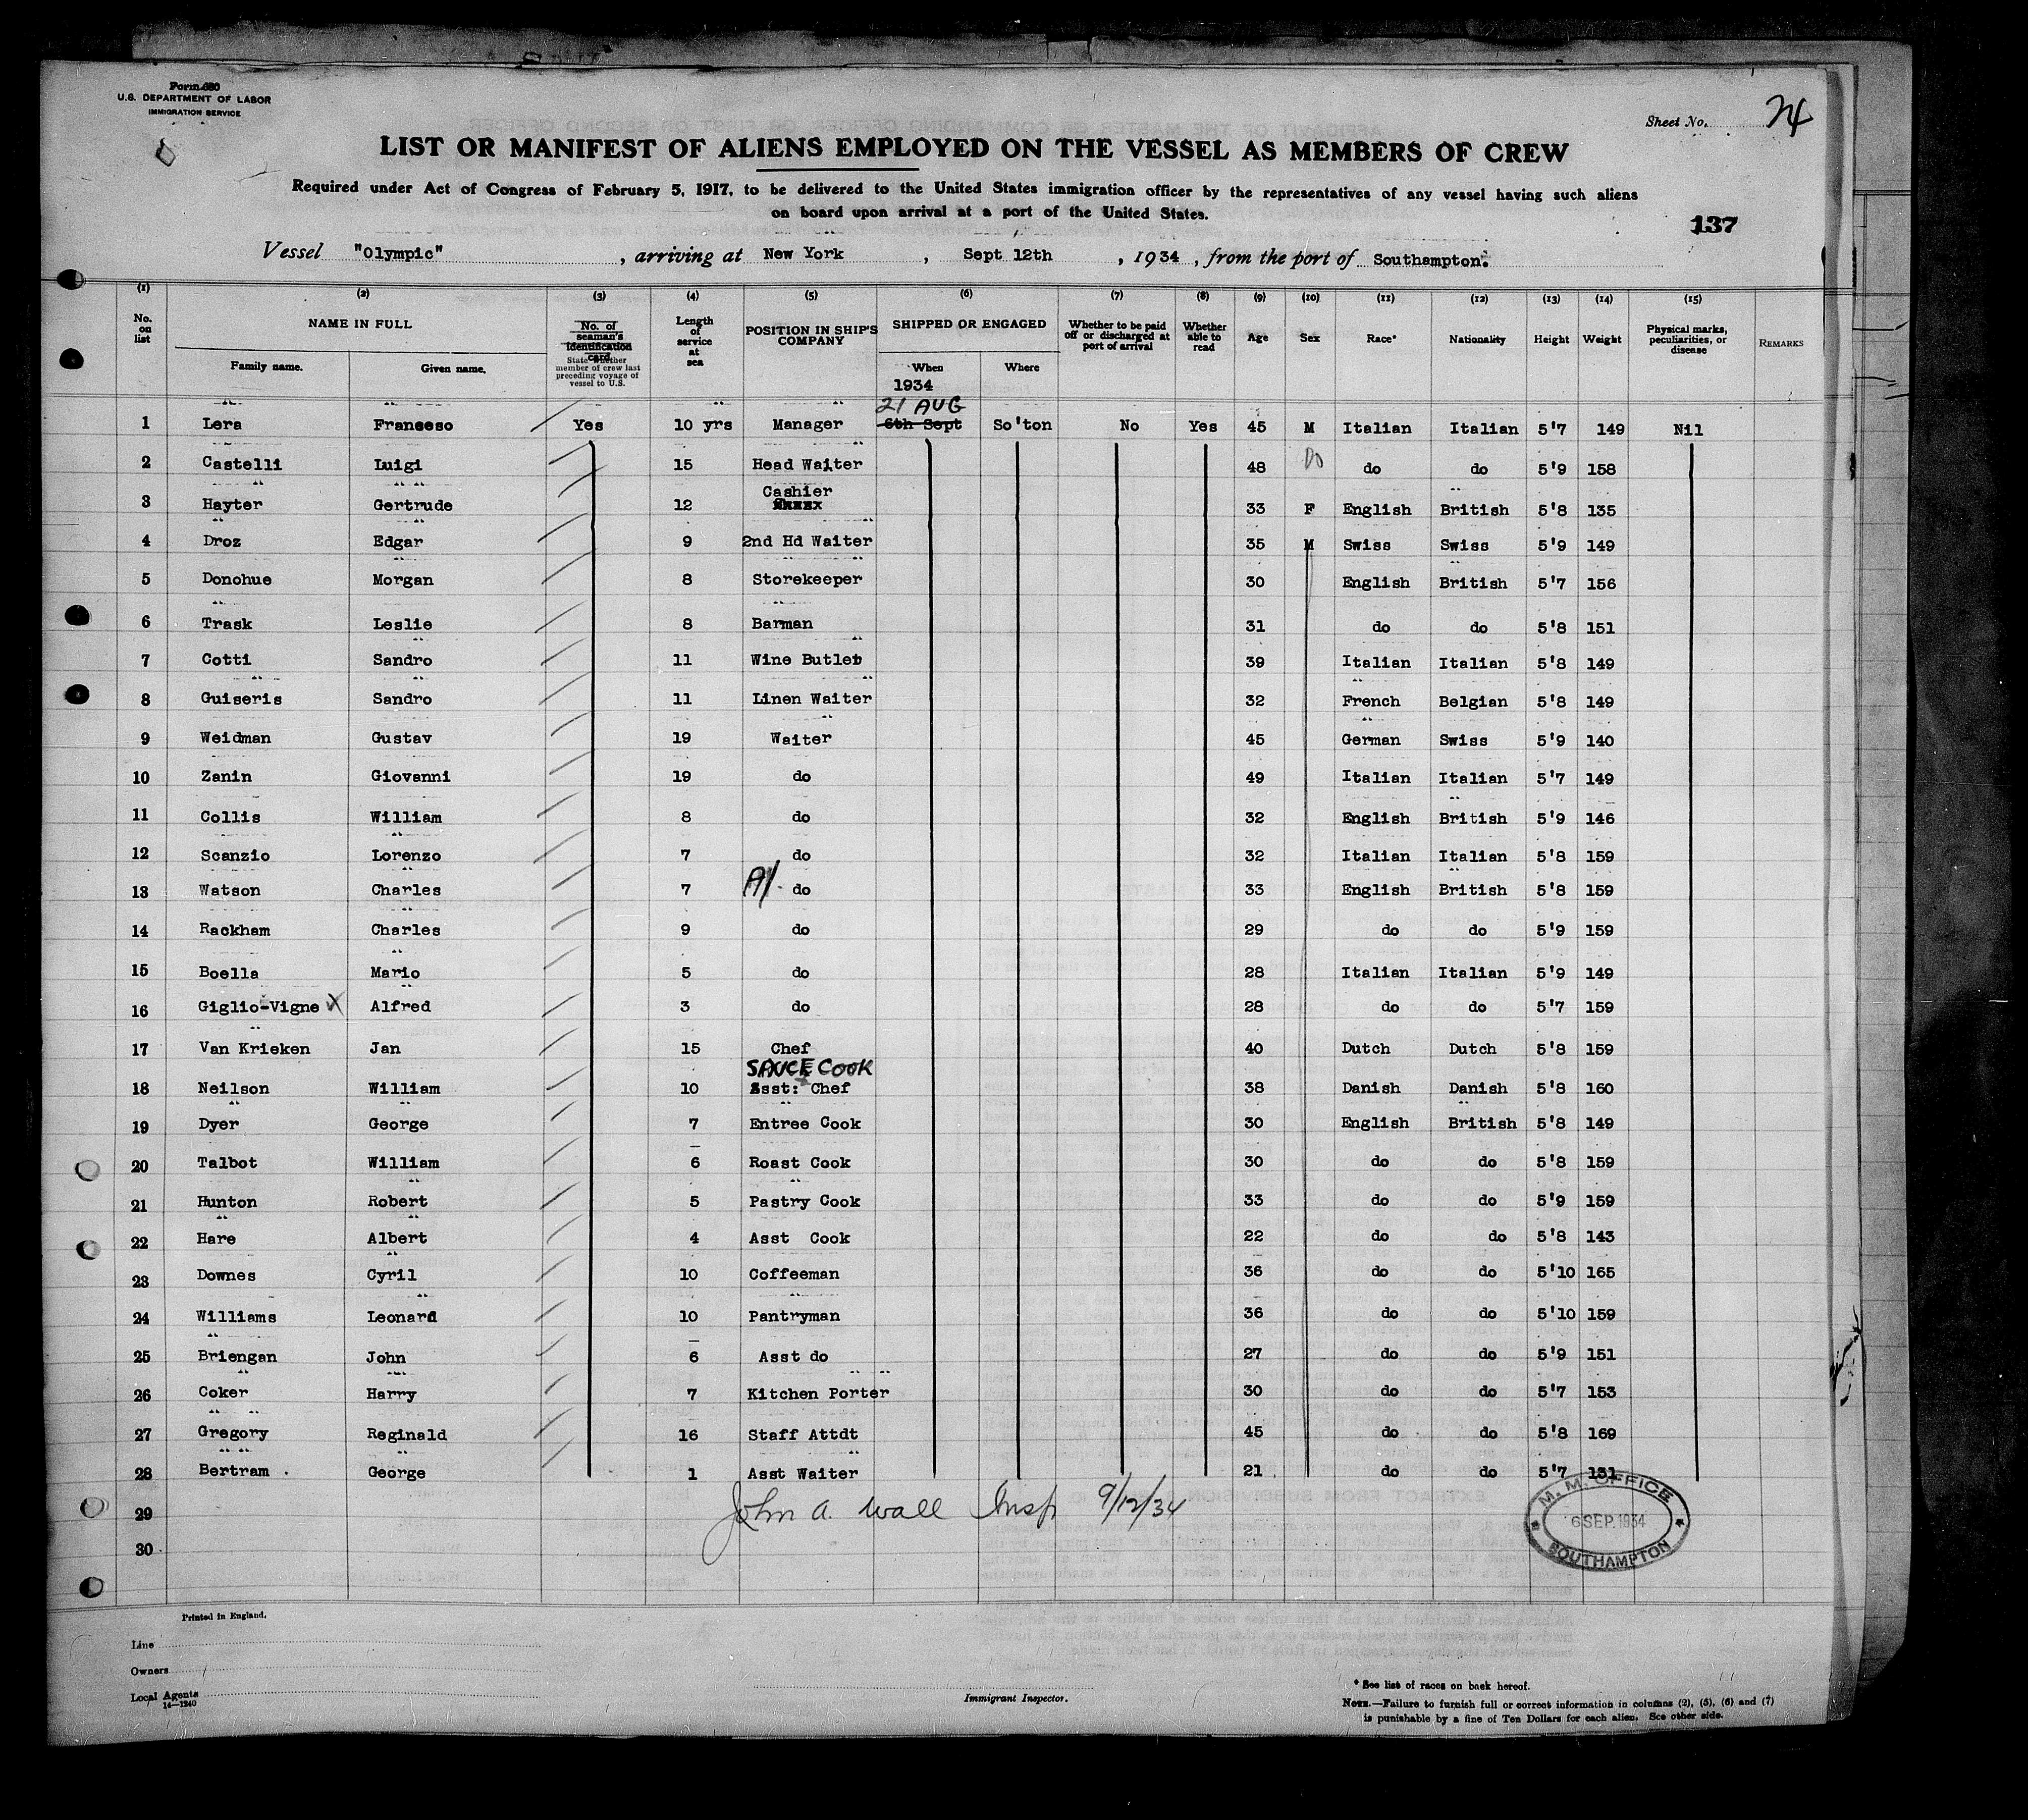 Form 680
U.S. DEPARTMENT OF LABOR
IMMIGRATION SERVICE
Sheet No. 74
LIST OR MANIFEST OF ALIENS EMPLOYED ON THE VESSEL AS MEMBERS OF CREW
Required under Act of Congress of February 5, 1917, to be delivered to the United States immigration officer by the representatives of any vessel having such aliens
on board upon arrival at a port of the United States.
137
Vessel "Olympic", arriving at New York, Sept 12th, 1934, from the port of Southampton.
(1) (2) (3) (4) (5) (6) (7) (8) (9) (10) (11) (12) (13) (14) (15)
No. on list NAME IN FULL Family name. Given name. No. of seaman's identification card State whether member of crew last preceding voyage of vessel to U.S. Length of service at sea POSITION IN SHIP'S COMPANY SHIPPED OR ENGAGED When Where Whether to be paid off or discharged at port of arrival Whether able to read Age Sex Race* Nationality Height Weight Physical marks, peculiarities, or disease REMARKS
1934
21 AUG
1 Lera Franseso Yes 10 yrs Manager 6th Sept So'ton No Yes 45 M Italian Italian 5'7 149 Nil
2 Castelli Luigi 15 Head Waiter 48 Do do do 5'9 158
3 Hayter Gertrude 12 Cashier 33 F English British 5'8 135
4 Droz Edgar 9 2nd Hd Waiter 35 M Swiss Swiss 5'9 149
5 Donohue Morgan 8 Storekeeper 30 English British 5'7 156
6 Trask Leslie 8 Barman 31 do do 5'8 151
7 Cotti Sandro 11 Wine Butler 39 Italian Italian 5'8 149
8 Guiseris Sandro 11 Linen Waiter 32 French Belgian 5'8 149
9 Weidman Gustav 19 Waiter 45 German Swiss 5'9 140
10 Zanin Giovanni 19 do 49 Italian Italian 5'7 149
11 Collis William 8 do 32 English British 5'9 146
12 Scanzio Lorenzo 7 do 32 Italian Italian 5'8 159
13 Watson Charles 7 do 33 English British 5'8 159
14 Rackham Charles 9 do 29 do do 5'9 159
15 Boella Mario 5 do 28 Italian Italian 5'9 149
16 Giglio-Vigne X Alfred 3 do 28 do do 5'7 159
17 Van Krieken Jan 15 Chef 40 Dutch Dutch 5'8 159
SAUCE COOK
18 Neilson William 10 Asst: Chef 38 Danish Danish 5'8 160
19 Dyer George 7 Entree Cook 30 English British 5'8 149
20 Talbot William 6 Roast Cook 30 do do 5'8 159
21 Hunton Robert 5 Pastry Cook 33 do do 5'9 159
22 Hare Albert 4 Asst Cook 22 do do 5'8 143
23 Downes Cyril 10 Coffeeman 36 do do 5'10 165
24 Williams Leonard 10 Pantryman 36 do do 5'10 159
25 Briengan John 6 Asst do 27 do do 5'9 151
26 Coker Harry 7 Kitchen Porter 30 do do 5'7 153
27 Gregory Reginald 16 Staff Attdt 45 do do 5'8 169
28 Bertram George 1 Asst Waiter 21 do do 5'7 151
29 John A. Wall Insp 9/12/34
30
M. M. OFFICE
6 SEP. 1934
SOUTHAMPTON
Printed in England.
Line
Owners
Local Agents
14—1240
Immigrant Inspector.
* See list of races on back hereof.
NOTE.—Failure to furnish full or correct information in columns (2), (5), (6) and (7)
is punishable by a fine of Ten Dollars for each alien. See other side.